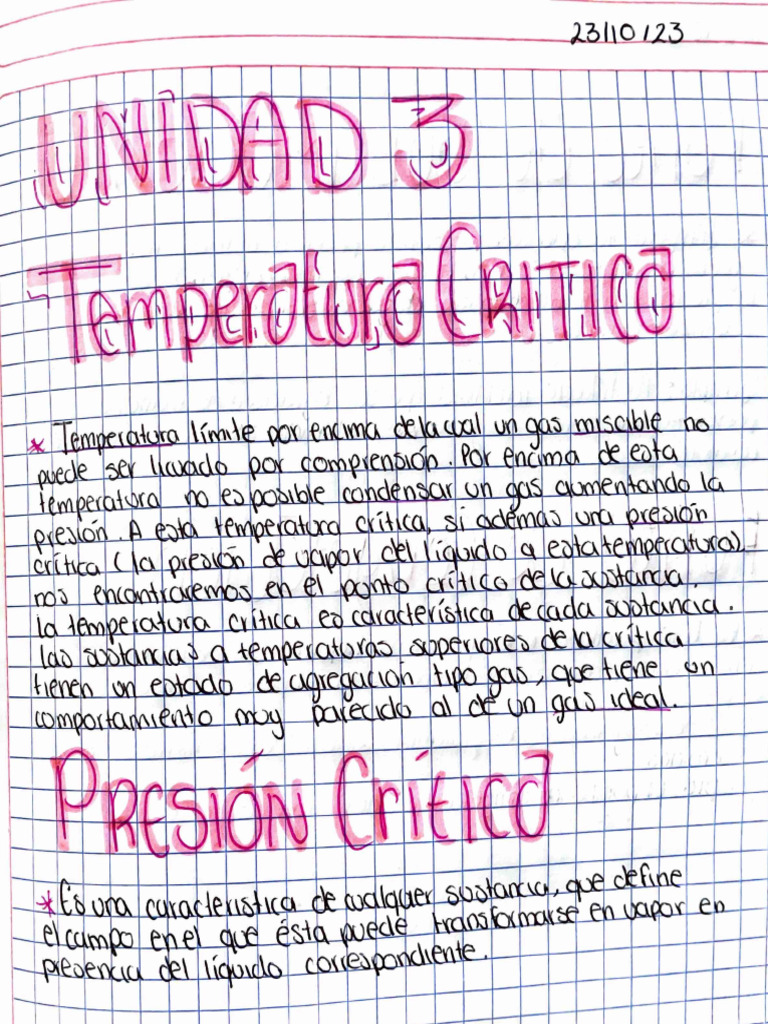 23/10/23
UNIDAD 3
Temperatura CRITICA
* Temperatura límite por encima de la cual un gas miscible no
puede ser licuado por comprensión. Por encima de esta
temperatura no es posible condensar un gas aumentando la
presión. A esta temperatura crítica, si además una presión
crítica (la presión de vapor del líquido a esta temperatura)
nos encontraremos en el ponto crítico de la sustancia.
la temperatura crítica es característica de cada sustancia.
las sustancias a temperaturas superiores de la crítica
tienen un estado de agregación tipo gas, que tiene un
comportamiento muy parecido al de un gas ideal.
PRESIÓN Crítica
* Es una caracteristica de cualquer sustancia, que define
el campo en el que ésta puede transformarse en vapor en
presencia del líquido correspondiente.